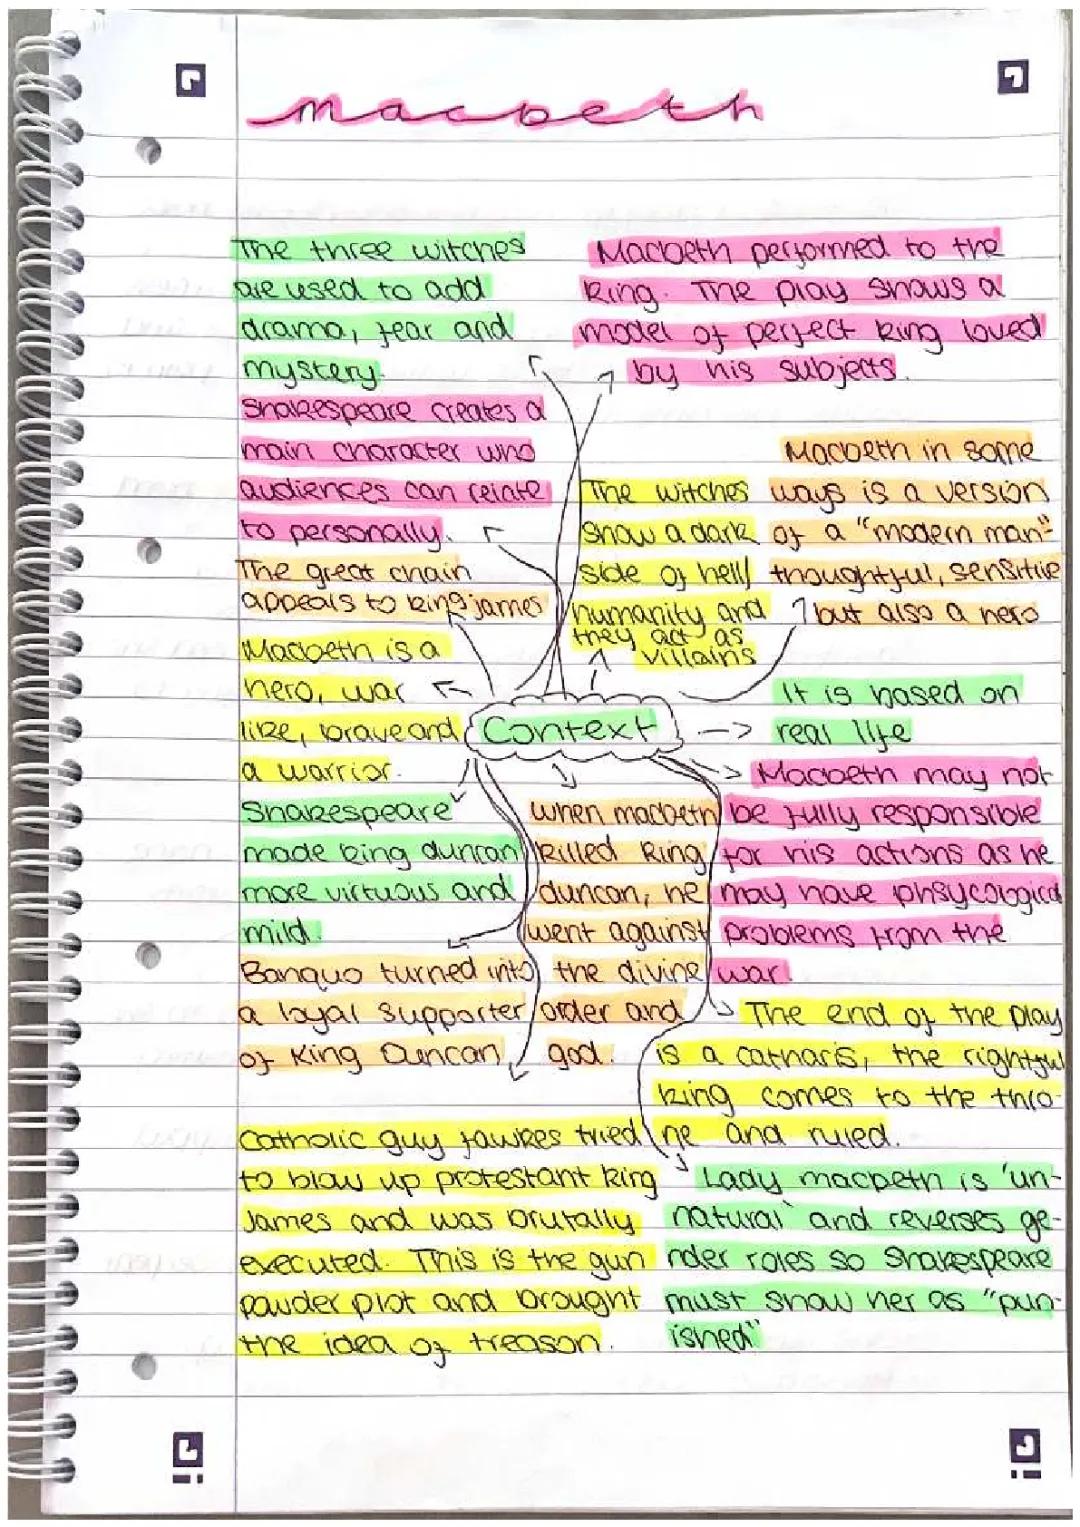 macbeth
The three witches
are used to add
drama, fear and
mystery.
Shakespeare creates a
main character who
audiences can relate
to personally.
The great chain
appeals to king james
Macbeth is a
hero, war
like, brave and
a warrior.
Shakespeare
made king duncan
more virtuous and
mild.
Banquo turned into
a loyal supporter
of King Duncan
Catholic guy fawkes tried
to blow up protestant king
James and was brutally
executed. This is the gun
powder plot and brought
the idea of treason.
Macbeth performed to the
king. The play shows a
model of perfect king loved
by his subjects.
The witches
show a dark
side of hell/
humanity and
they act as
villains
Macbeth in some
ways is a version
of a "modern man"
thoughtful, sensitive
but also a hero
Context
It is based on
real life
Macbeth may not
be fully responsible
for his actions as he
may have phsycological
problems from the
war.
when macbeth
killed king
duncan, he
went against
the divine
order and
god.
The end of the play
is a catharis, the rightful
king comes to the thro-
ne and ruled.
Lady macbeth is 'un-
natural' and reverses ge-
nder roles so Shakespeare
must show her as "pun-
ished"